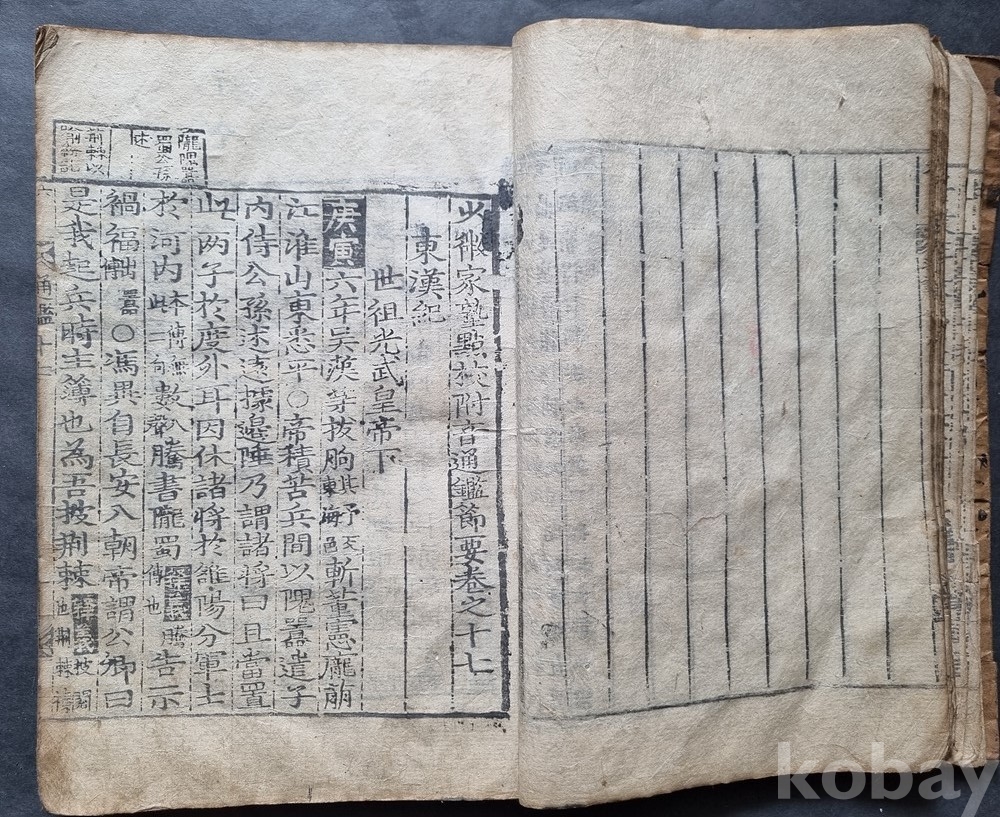 少微家塾點校附音通鑑節要卷之十七
東漢紀
世祖光武皇帝下
庚寅六年吳漢等拔朐東海邑斬董憲龐萌
江淮山東悉平○帝積苦兵間以隗囂遣子
內侍公孫述遠據邊陲乃謂諸將曰且當置
此两子於度外耳因休諸將於雒陽分軍士
於河內數騰書隴蜀騰傳也告示
禍福○馮異自長安入朝帝謂公卿曰
是我起兵時主簿也為吾披荊棘
隴隗囂
蜀公孫
述
荊棘以
kobay